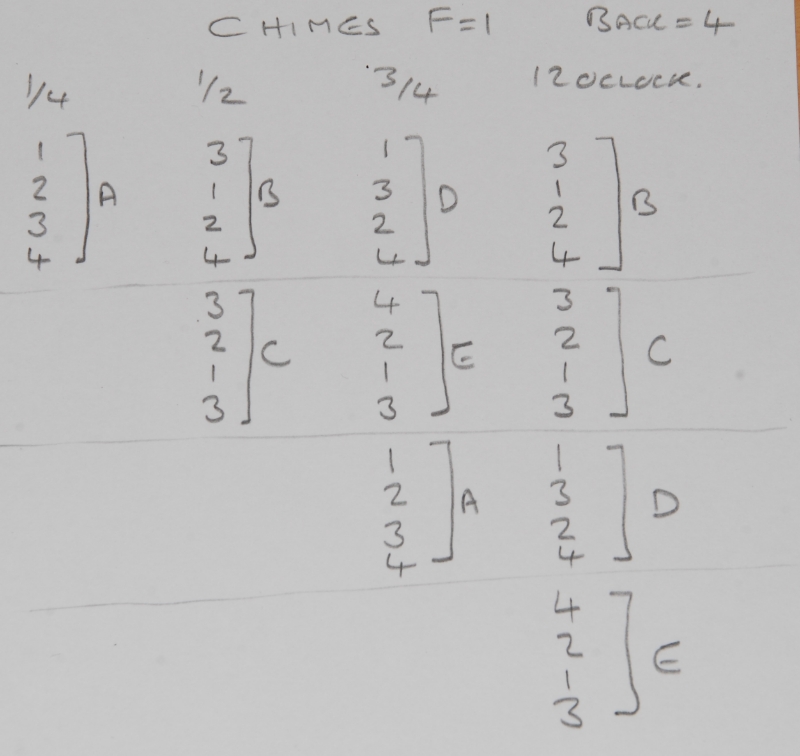 CHIMES F=1 BACK=4
1/4 1/2 3/4 12 OCLOCK.
1 3 1 3
2 1 3 1
A B D B
3 2 2 2
4 4 4 4
3 4 3
2 2 2
C E C
1 1 1
3 3 3
1 1
2 3
A D
3 2
4 4
4
2
E
1
3